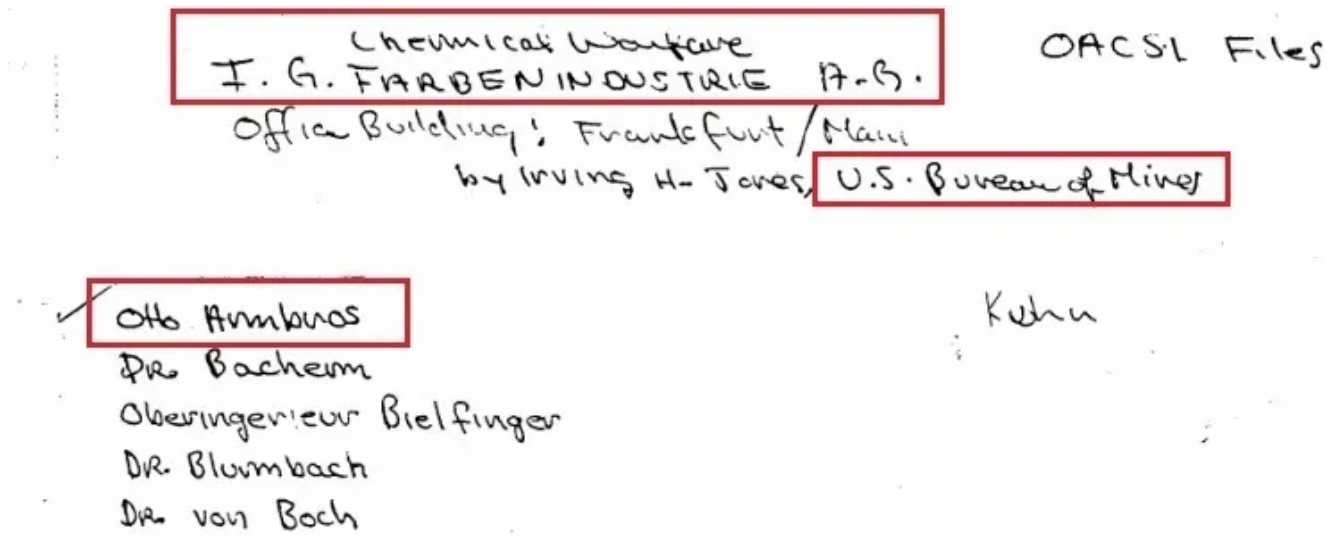 Chemical Warfare
I. G. FARBENINDUSTRIE A.G.
OACSI Files
Office Building: Frankfurt/Main
by Irving H. Jones, U.S. Bureau of Mines
Otto Ambros
Kuhn
DR. Bachem
Oberingenieur Bielfinger
DR. Blumbach
DR. von Boch